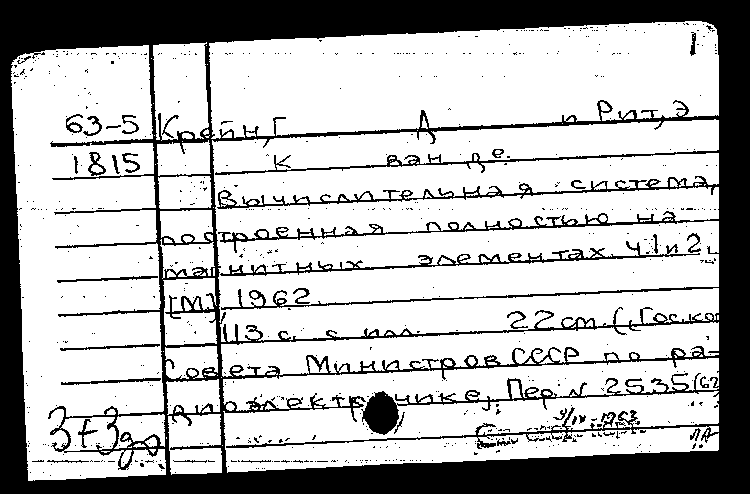 1
63-5 Крейн, Г Д и Рит, Э
1815 К ван де.
Вычислительная система,
построенная полностью на
магнитных элементах. Ч.1 и 2.
[М], 1962.
113 с. с илл. 22 cm. (Госко
Совета Министров СССР по ра-
диоэлектронике, Пер N 2535(62
3+3
9/IV-1963
ЛА